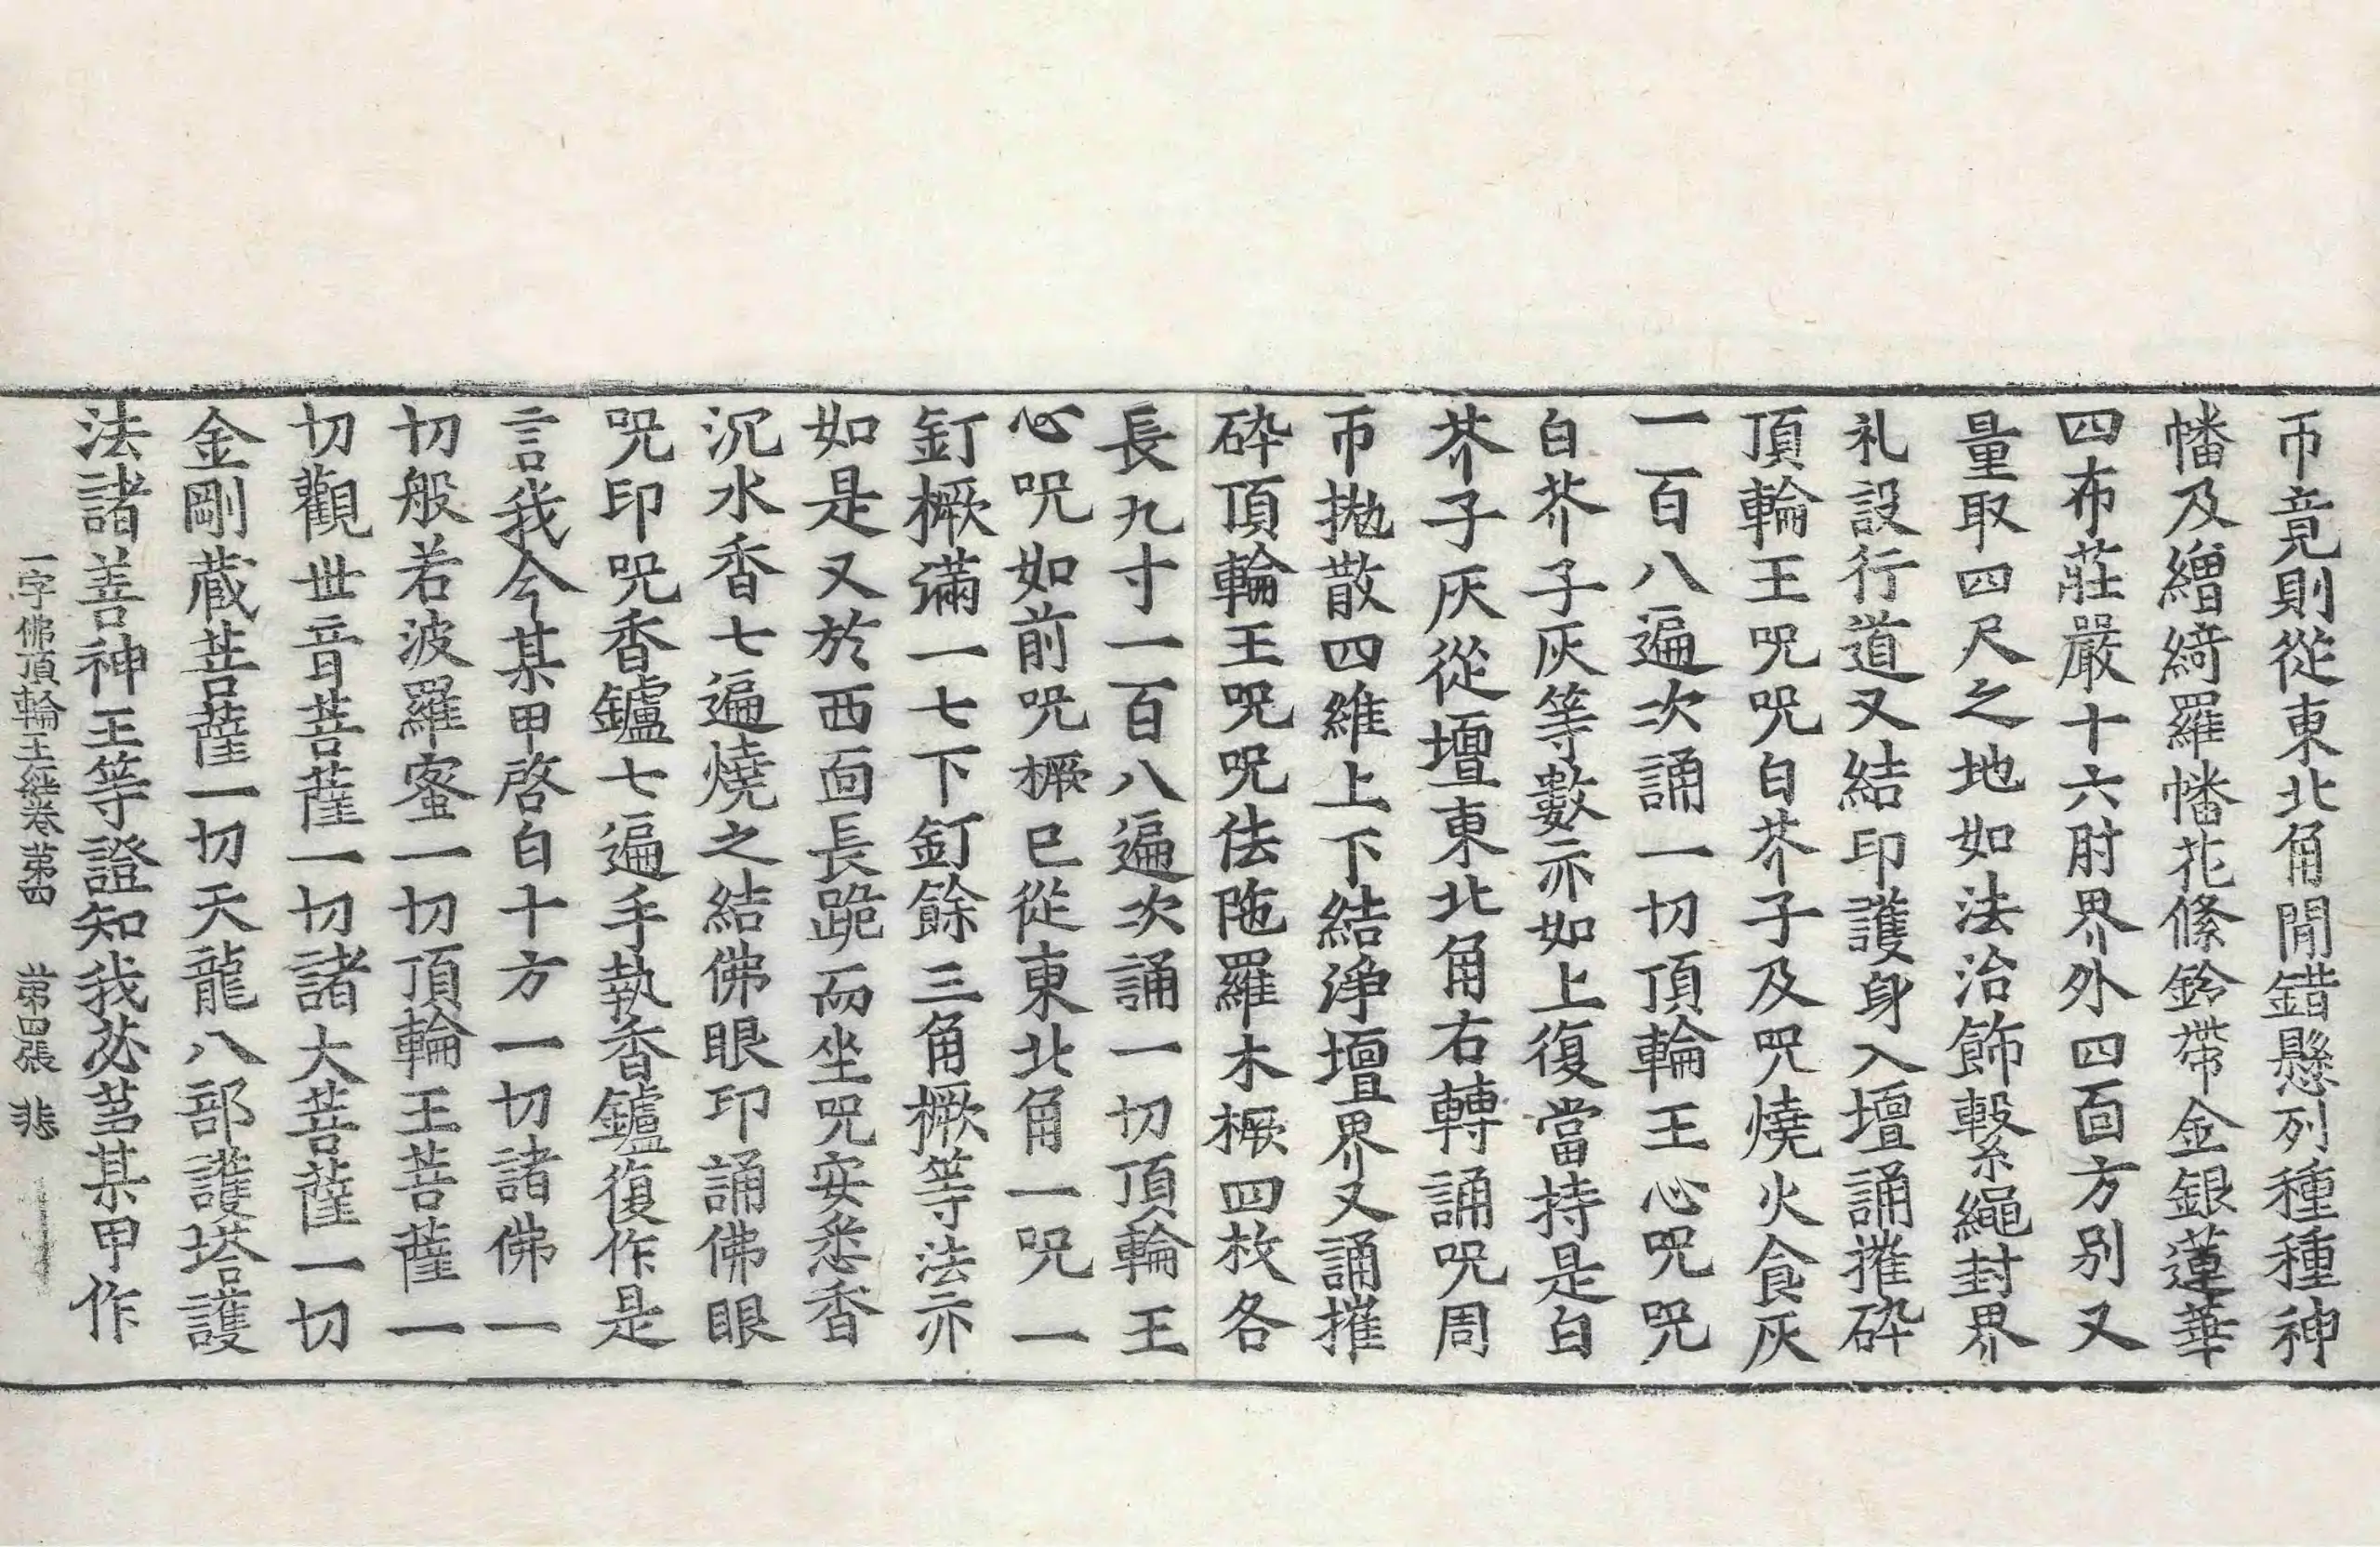 帀竟則從東北角閒錯懸列種種神
幡及繒綺羅幡花絛鈴帶金銀蓮華
四布莊嚴十六肘界外四面方別又
量取四尺之地如法治飾繫繩封界
礼設行道又結印護身入壇誦摧碎
頂輪王咒咒白芥子及咒燒火食灰
一百八遍次誦一切頂輪王心咒咒
白芥子灰等數亦如上復當持是白
芥子灰從壇東北角右轉誦咒周
帀拋散四維上下結淨壇界又誦摧
碎頂輪王咒咒佉陁羅木橛四枚各
長九寸一百八遍次誦一切頂輪王
心咒如前咒橛已從東北角一咒一
釘橛滿一七下釘餘三角橛等法亦
如是又於西面長跪而坐咒安悉香
沉水香七遍燒之結佛眼印誦佛眼
咒印咒香鑪七遍手執香鑪復作是
言我今某甲啓白十方一切諸佛一
切般若波羅蜜一切頂輪王菩薩一
切觀世音菩薩一切諸大菩薩一切
金剛藏菩薩一切天龍八部護塔護
法諸善神王等證知我苾蒭某甲作
一字佛頂輪王經卷第四　第四張　悲